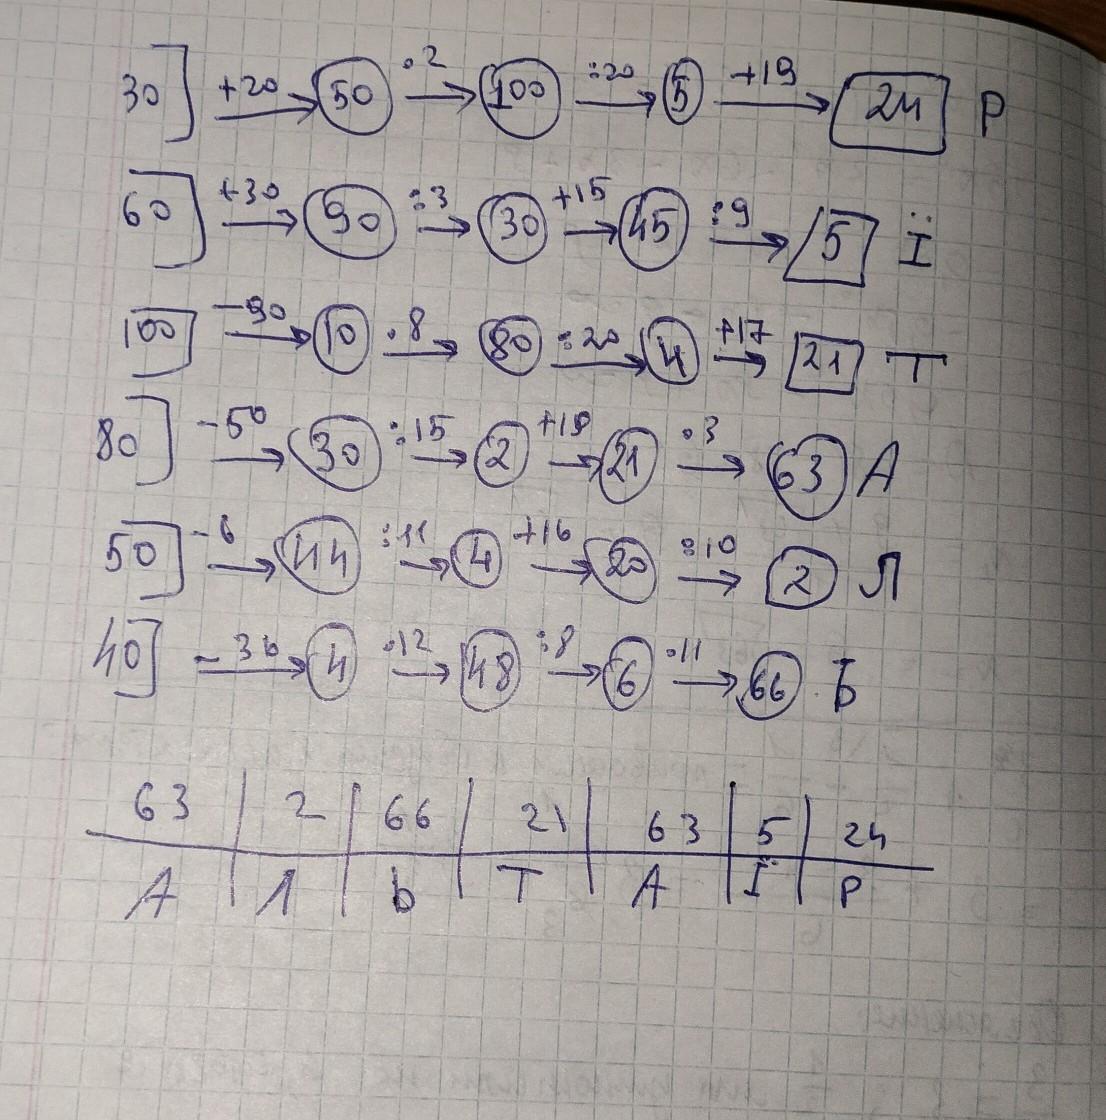 30] +20 → 50 ·2 → 100 :20 → 5 +19 → 24 Р
60] +30 → 90 :3 → 30 +15 → 45 :9 → 5 Ї
100] -90 → 10 ·8 → 80 :20 → 4 +17 → 21 Т
80] -50 → 30 :15 → 2 +19 → 21 ·3 → 63 А
50] -6 → 44 :11 → 4 +16 → 20 :10 → 2 Л
40] -36 → 4 ·12 → 48 :8 → 6 ·11 → 66 Ь
63 | 2 | 66 | 21 | 63 | 5 | 24
А | Л | Ь | Т | А | Ї | Р